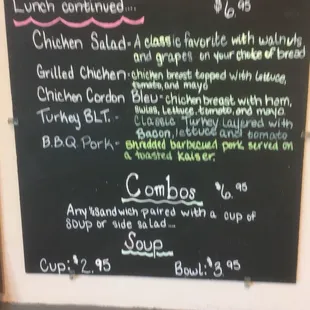 Lunch continued... $6.95
Chicken Salad - A classic favorite with walnuts
and grapes on your choice of bread
Grilled Chicken - chicken breast topped with lettuce,
tomato, and mayo
Chicken Cordon Bleu - chicken breast with ham,
swiss, lettuce, tomato, and mayo
Turkey BLT. - Classic Turkey layered with
Bacon, lettuce and tomato
B.B.Q Pork - shredded barbecued pork served on
a toasted kaiser.
Combos $6.95
Any ½ sandwich paired with a cup of
soup or side salad...
Soup
Cup: $2.95 Bowl: $3.95